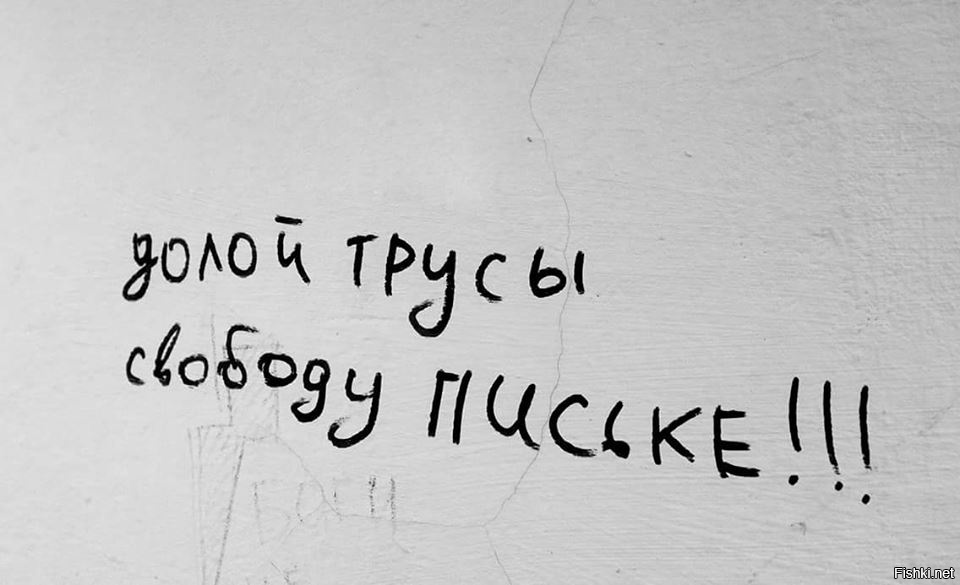 долой трусы
свободу ПИСЬКЕ!!!
Fishki.net